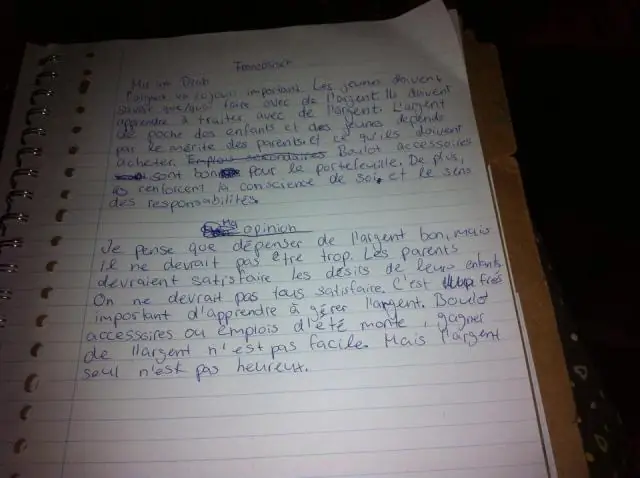 Französisch
L'argent va toujours important. Les jeunes doivent
savoir que/quoi faire avec de l'argent. Ils doivent
apprendre à traiter avec de l'argent. L'argent
de poche des enfants et des jeunes dépends
par le mérite des parents et ce qu'iles doivent
acheter. Emplois secondaires Boulot accessoires
sont bon pour le portefeuille. De plus,
ils renforcent la conscience de soi, et le sens
des responsabilités.
Ma opinion
Je pense que dépenser de l'argent bon, mais
il ne devrait pas être trop. Les parents
devraient satisfaire les désirs de leurs enfants.
On ne devrait pas tous satisfaire. C'est très
important d'apprendre à gérer l'argent. Boulot
accessoires ou Emplois d'été monte, gagner
de l'argent n'est pas facile. Mais l'argent
seul n'est pas heureux.